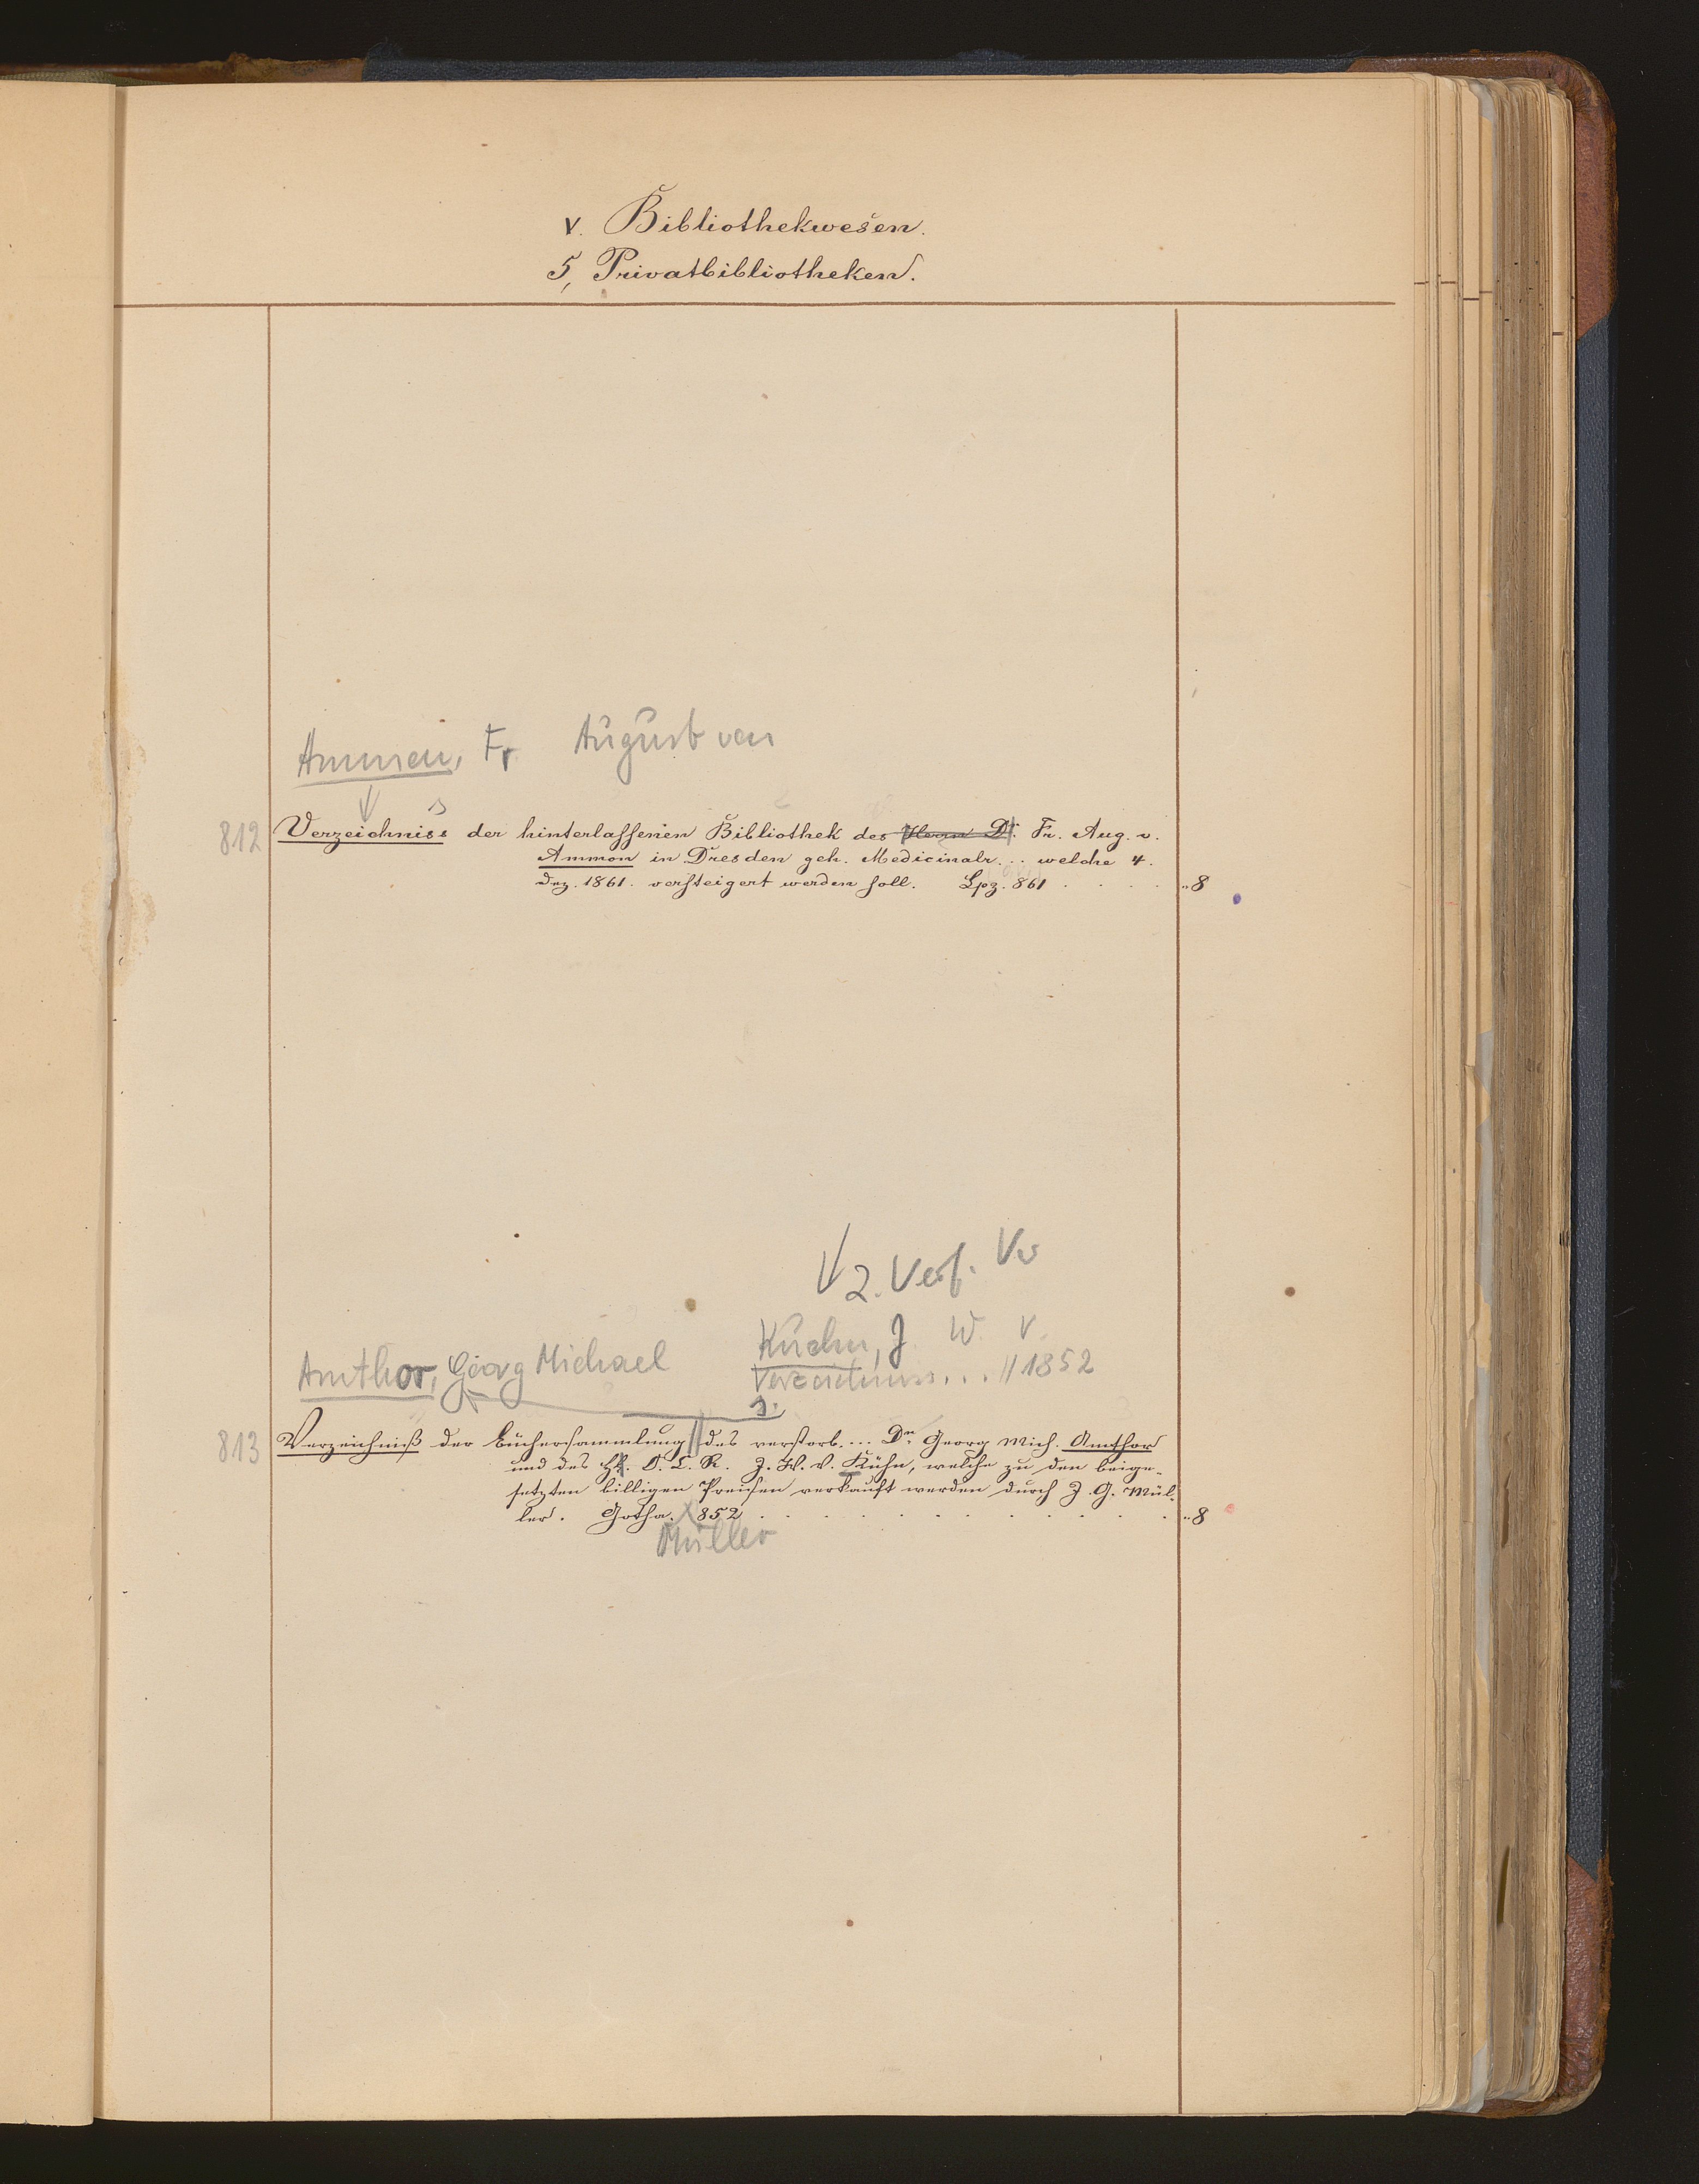 V. Bibliothekwesen.
5, Privatbibliotheken.
Ammon, Fr. August von
812 Verzeichniss der hinterlassenen Bibliothek des Herrn Dr. Fr. Aug. v.
Ammon in Dresden geh. Medicinalr. .. welche 4.
Dez. 1861. versteigert werden soll. Lpz. 861 . . . . "8
2. Verf. Vw
Kuehn, J. W. v.
Amthor, Georg Michael
Verzeichniss... // 1852
s.
813 Verzeichniß der Büchersammlung || des verstorb. ... Dr. Georg Mich. Amthor
und des H. O. C. R. J. W. v. Kühn, welche zu den beige-
setzten billigen Preisen verkauft werden durch J. G. Mül-
ler. Gotha. 852 . . . . "8
Müller